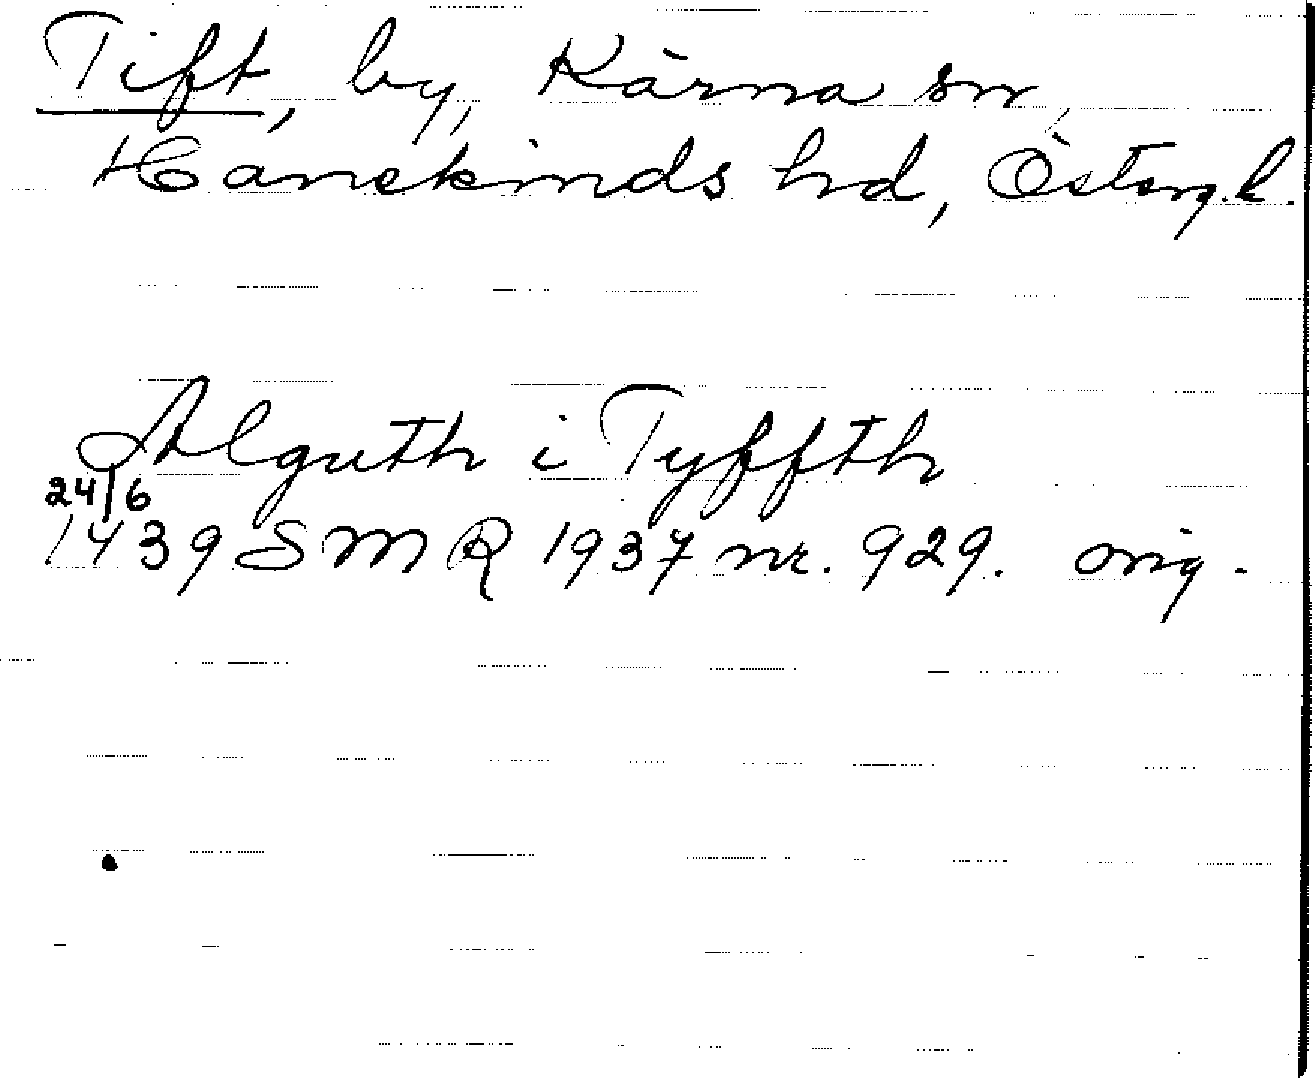 Tift, by, Kärna sn,
Hanekinds hd, Österg.l.
Alguth i Tyffth
24/6
1439 SMR 1937 nr. 929. orig.